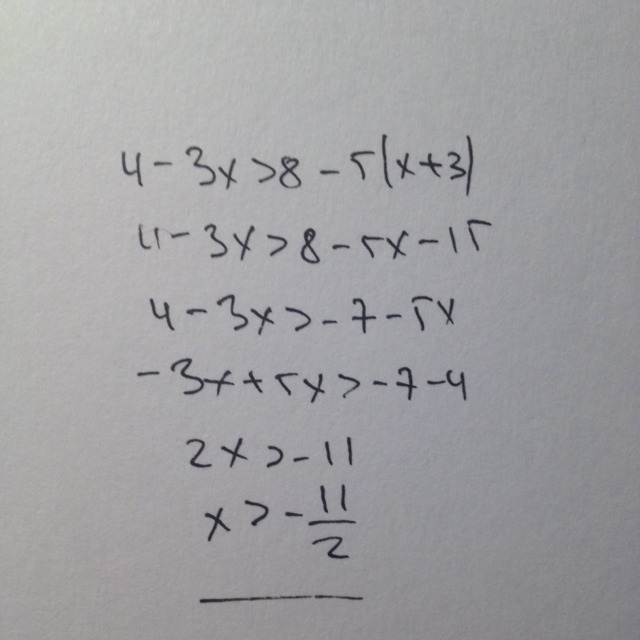 4 - 3x > 8 - 5(x+3)
4 - 3x > 8 - 5x - 15
4 - 3x > - 7 - 5x
- 3x + 5x > - 7 - 4
2x > - 11
x > - 11/2